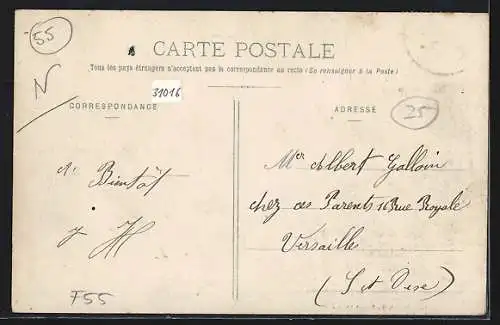 55
CARTE POSTALE
Tous les pays étrangers n'acceptent pas la correspondance au recto (Se renseigner à la Poste)
31016
CORRESPONDANCE
ADRESSE
25
Mr Albert Galloin
chez ses Parents 16 Rue Royale
Versaille
(S et Oise)
A Bientôt
F55